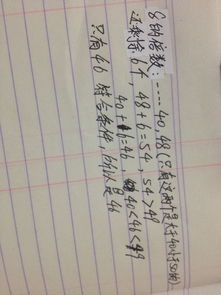 8的倍数:……40,48(只有这两个是大于40小于50的)
还剩6个,48+6=54,54>49
40+6=46,40<46<49
只有46符合条件,所以是46